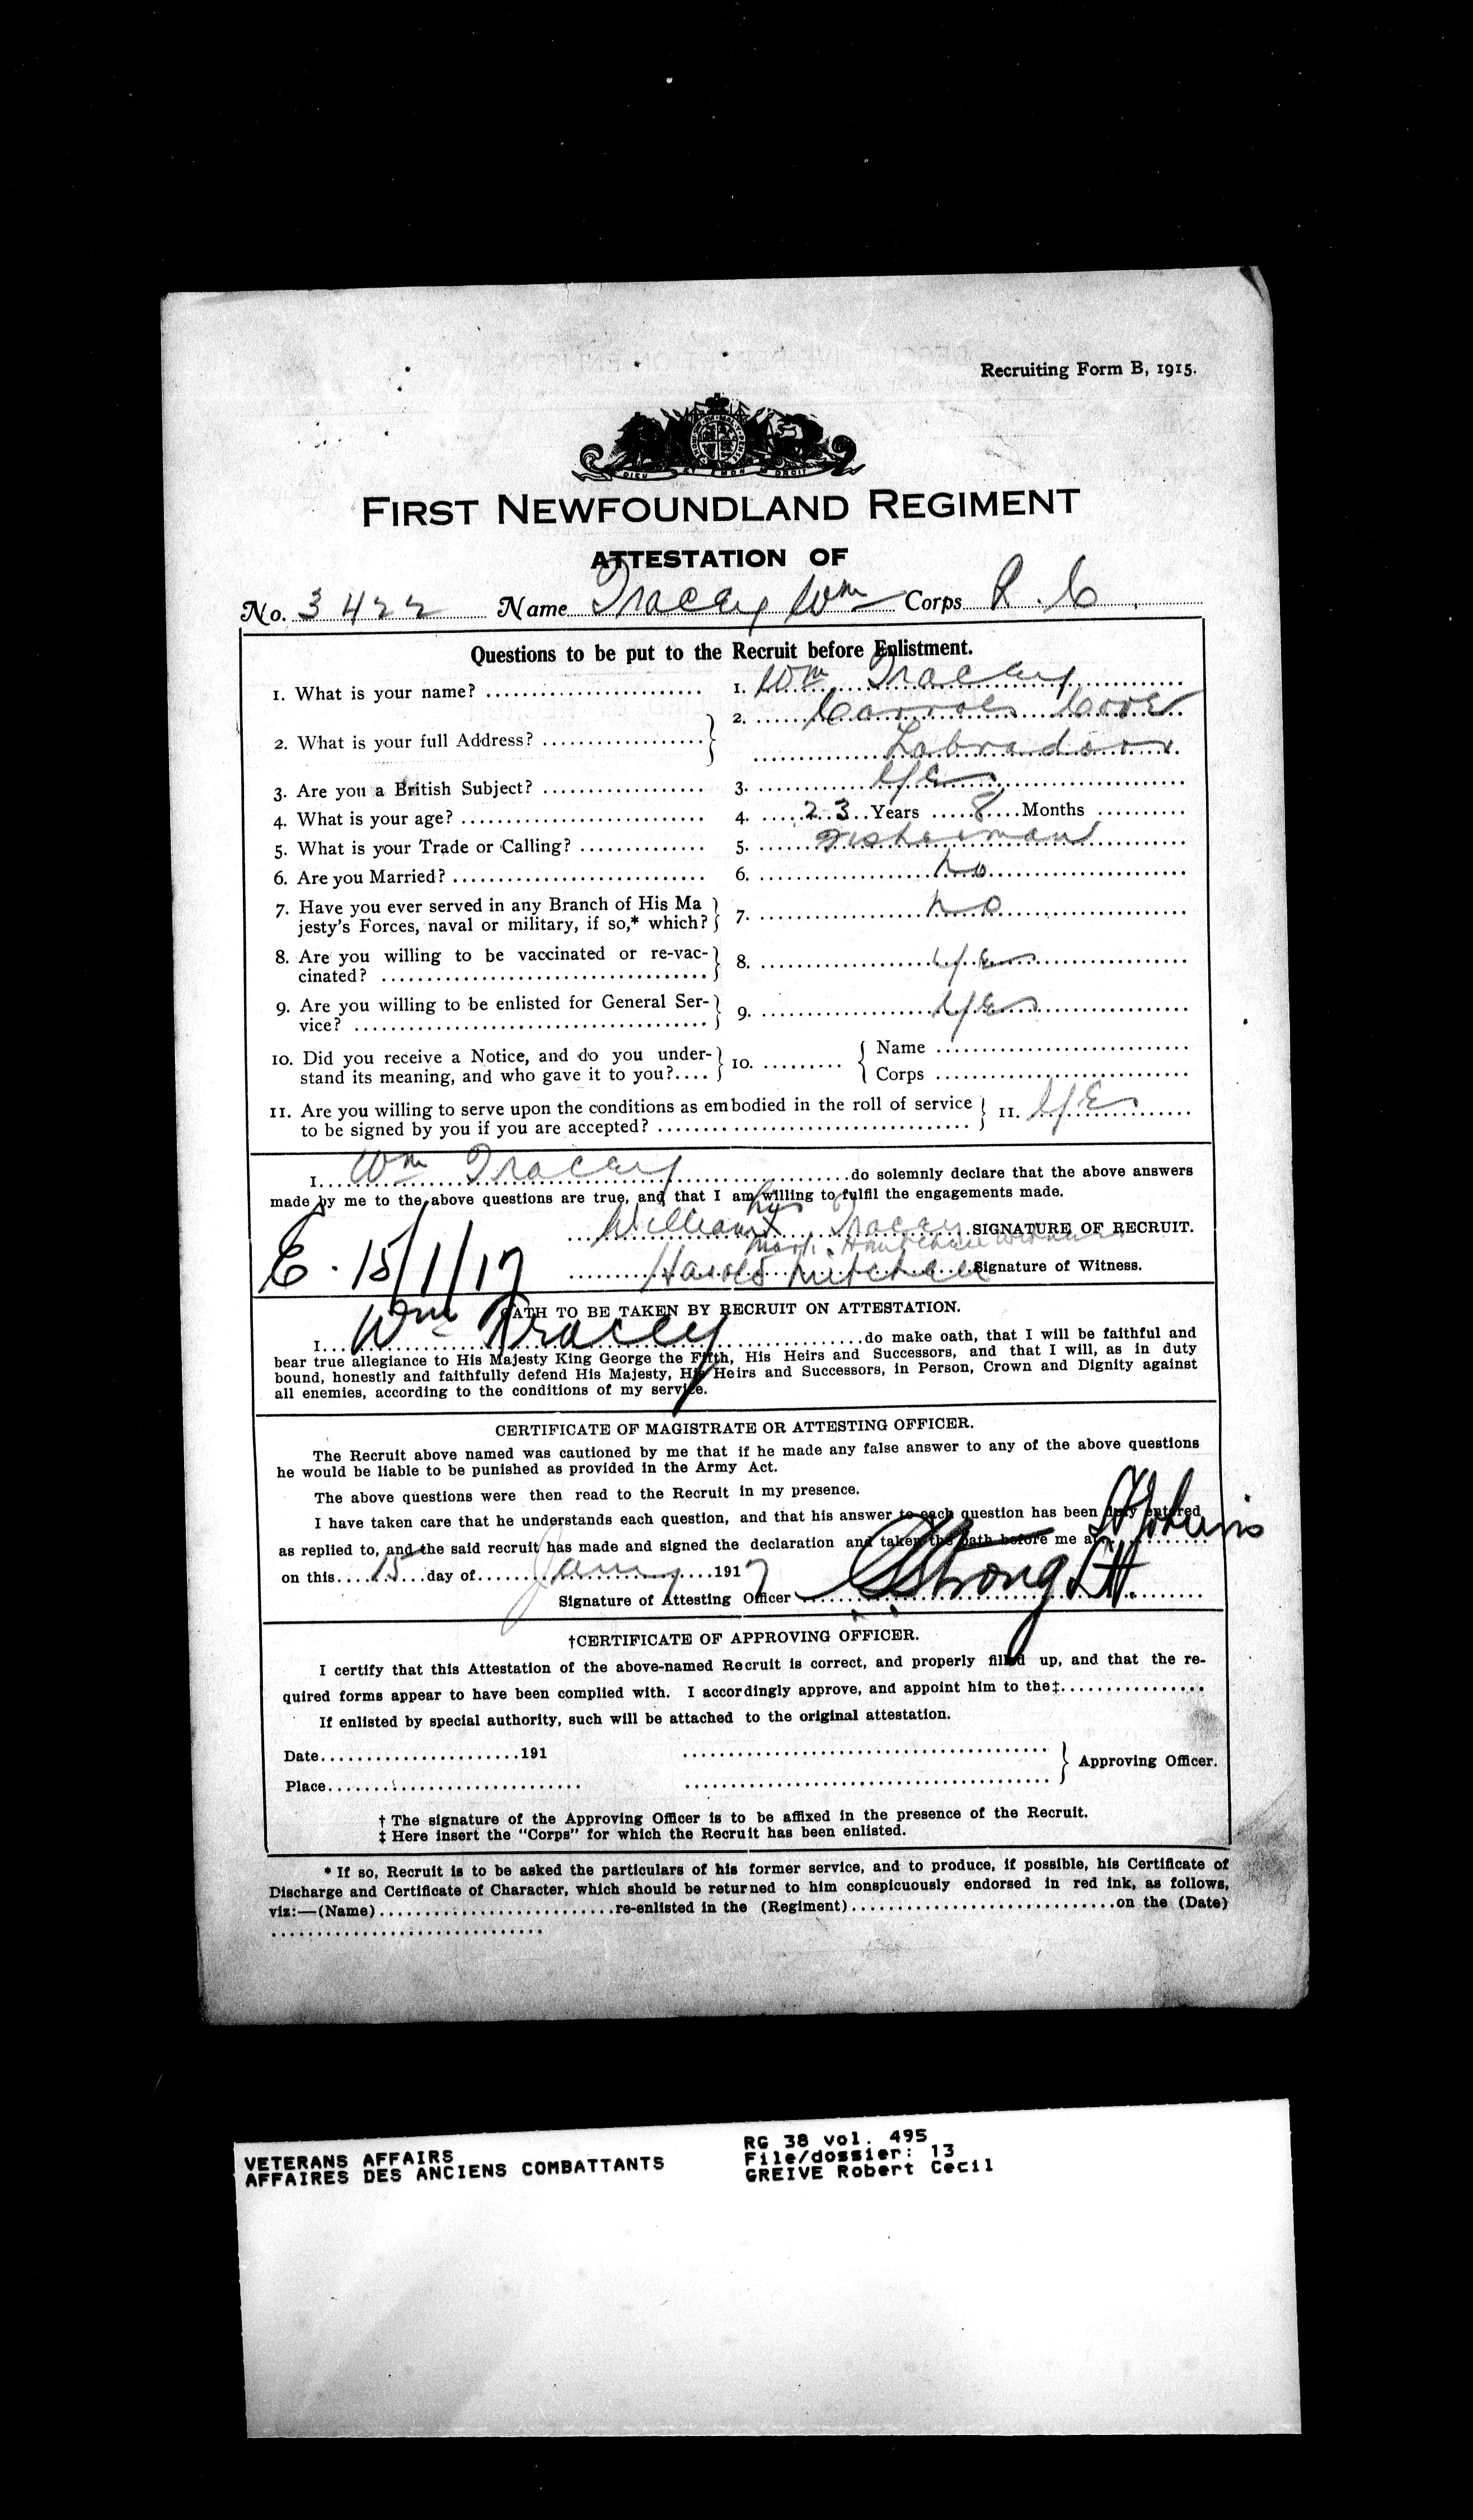 Recruiting Form B, 1915.
DIEU ET MON DROIT
FIRST NEWFOUNDLAND REGIMENT
ATTESTATION OF
No. 3422 Name Tracey Wm Corps R.C.
Questions to be put to the Recruit before Enlistment.
1. What is your name? 1. Wm Tracey
2. What is your full Address? 2. Carrols Cove
Labrador
3. Are you a British Subject? 3. Yes
4. What is your age? 4. 23 Years 8 Months
5. What is your Trade or Calling? 5. Fisherman
6. Are you Married? 6. No
7. Have you ever served in any Branch of His Ma
jesty's Forces, naval or military, if so,* which? 7. No
8. Are you willing to be vaccinated or re-vac-
cinated? 8. Yes
9. Are you willing to be enlisted for General Ser-
vice? 9. Yes
10. Did you receive a Notice, and do you under-
stand its meaning, and who gave it to you? 10. Name
Corps
11. Are you willing to serve upon the conditions as embodied in the roll of service
to be signed by you if you are accepted? 11. Yes
I Wm Tracey do solemnly declare that the above answers
made by me to the above questions are true, and that I am willing to fulfil the engagements made.
his
William X Tracey SIGNATURE OF RECRUIT.
mark
E. 15/1/17 Harold Mitchell Signature of Witness.
OATH TO BE TAKEN BY RECRUIT ON ATTESTATION.
I Wm Tracey do make oath, that I will be faithful and
bear true allegiance to His Majesty King George the Fifth, His Heirs and Successors, and that I will, as in duty
bound, honestly and faithfully defend His Majesty, His Heirs and Successors, in Person, Crown and Dignity against
all enemies, according to the conditions of my service.
CERTIFICATE OF MAGISTRATE OR ATTESTING OFFICER.
The Recruit above named was cautioned by me that if he made any false answer to any of the above questions
he would be liable to be punished as provided in the Army Act.
The above questions were then read to the Recruit in my presence.
I have taken care that he understands each question, and that his answer to each question has been duly entered
as replied to, and the said recruit has made and signed the declaration and taken the oath before me at St Johns
on this 15 day of Jany 1917
Signature of Attesting Officer CStrong Lt.
†CERTIFICATE OF APPROVING OFFICER.
I certify that this Attestation of the above-named Recruit is correct, and properly filled up, and that the re-
quired forms appear to have been complied with. I accordingly approve, and appoint him to the‡
If enlisted by special authority, such will be attached to the original attestation.
Date 191
Approving Officer.
Place
† The signature of the Approving Officer is to be affixed in the presence of the Recruit.
‡ Here insert the "Corps" for which the Recruit has been enlisted.
* If so, Recruit is to be asked the particulars of his former service, and to produce, if possible, his Certificate of
Discharge and Certificate of Character, which should be returned to him conspicuously endorsed in red ink, as follows,
viz:—(Name) re-enlisted in the (Regiment) on the (Date)
VETERANS AFFAIRS
AFFAIRES DES ANCIENS COMBATTANTS
RG 38 vol. 495
File/dossier: 13
GREIVE Robert Cecil